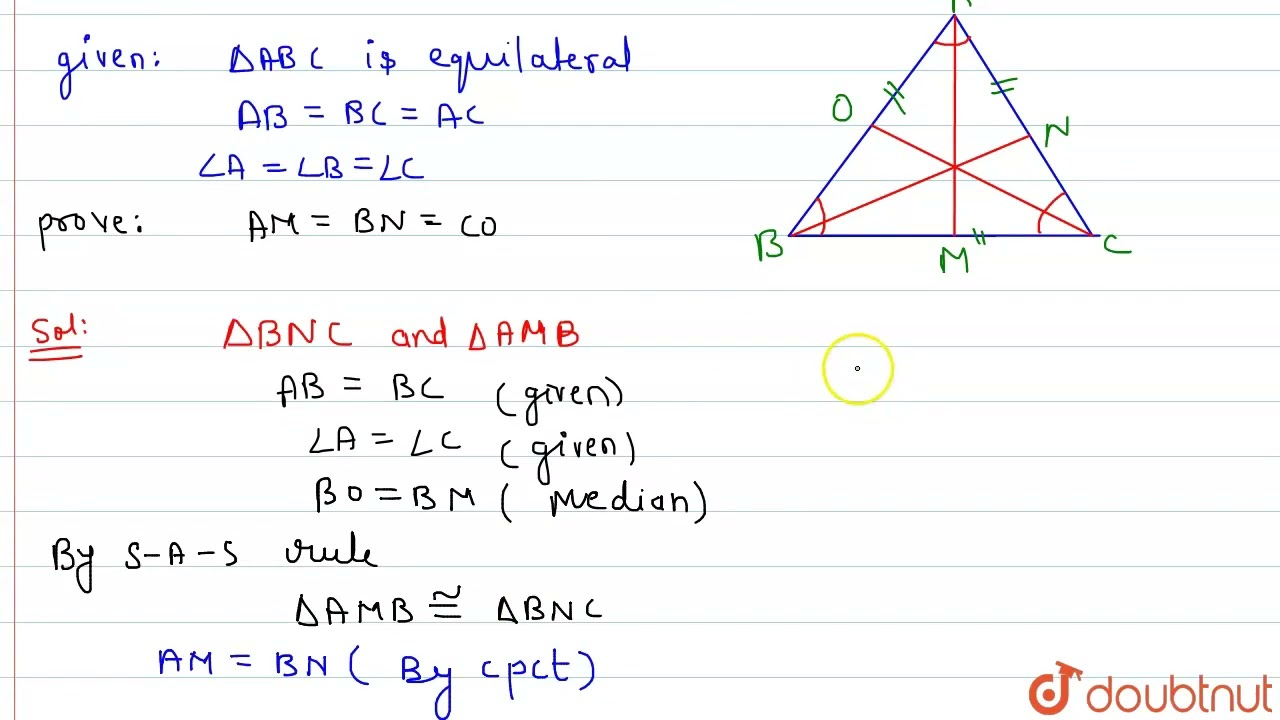 given: ΔABC is equilateral
AB = BC = AC
∠A = ∠B = ∠C
prove: AM = BN = CO
O
N
B
M
C
Sol: ΔBNC and ΔAMB
AB = BC (given)
∠A = ∠C (given)
BO = BM (Median)
By S-A-S rule
ΔAMB ≅ ΔBNC
AM = BN (By cpct)
doubtnut